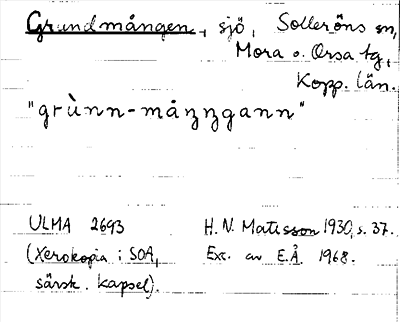 Grundmången, sjö, Solleröns sn,
Mora o. Orsa tg,
Kopp. län.
"grùnn-måŋŋgann"
ULMA 2693 H. N. Matsson 1930, s. 37.
(Xerokopia i SOA, Exc. av E.Å. 1968.
särsk. kapsel).